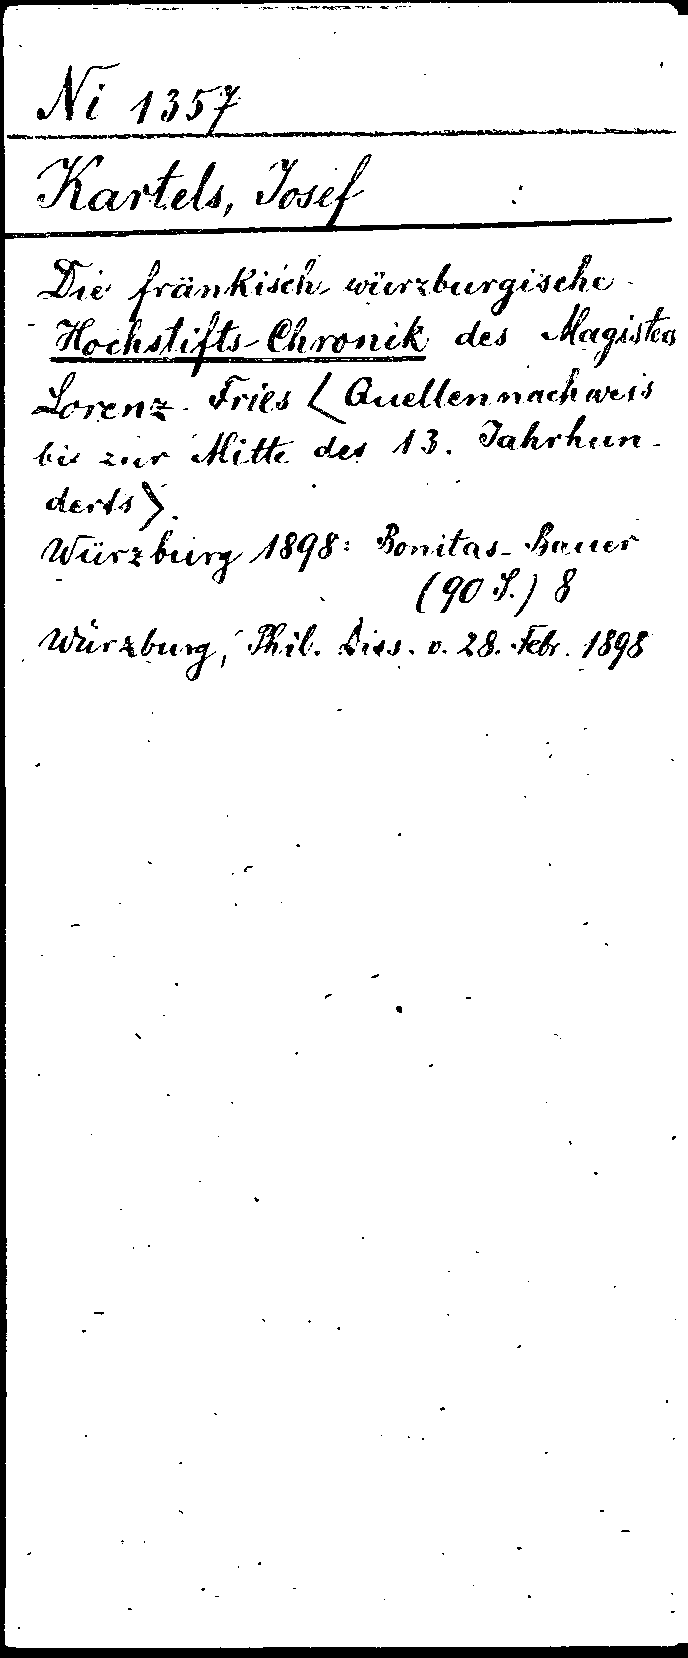 Ni 1357
Kartels, Josef
Die fränkisch-würzburgische
Hochstifts-Chronik des Magisters
Lorenz Fries <Quellennachweis
bis zur Mitte des 13. Jahrhun-
derts>.
Würzburg 1898: Bonitas-Bauer
(90 S.) 8
Würzburg, Phil. Diss. v. 28. Febr. 1898